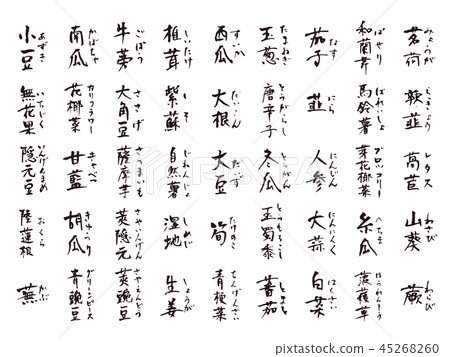 小豆 あずき
無花果 いちじく
隠元豆 いんげんまめ
陸蓮根 おくら
蕪 かぶ
南瓜 かぼちゃ
花椰菜 カリフラワー
甘藍 きゃべつ
胡瓜 きゅうり
青豌豆 グリーンピース
牛蒡 ごぼう
大角豆 ささげ
薩摩芋 さつまいも
莢隠元 さやいんげん
莢豌豆 さやえんどう
椎茸 しいたけ
紫蘇 しそ
自然薯 じねんじょ
湿地 しめじ
生姜 しょうが
西瓜 すいか
大根 だいこん
大豆 だいず
筍 たけのこ
青梗菜 ちんげんさい
玉葱 たまねぎ
唐辛子 とうがらし
冬瓜 とうがん
玉蜀黍 とうもろこし
蕃茄 とまと
茄子 なす
韮 にら
人参 にんじん
大蒜 にんにく
白菜 はくさい
和蘭芹 ぱせり
馬鈴薯 ばれいしょ
芽花椰菜 ブロッコリー
糸瓜 へちま
菠薐草 ほうれんそう
茗荷 みょうが
辣韮 らっきょう
萵苣 レタス
山葵 わさび
蕨 わらび
45268260